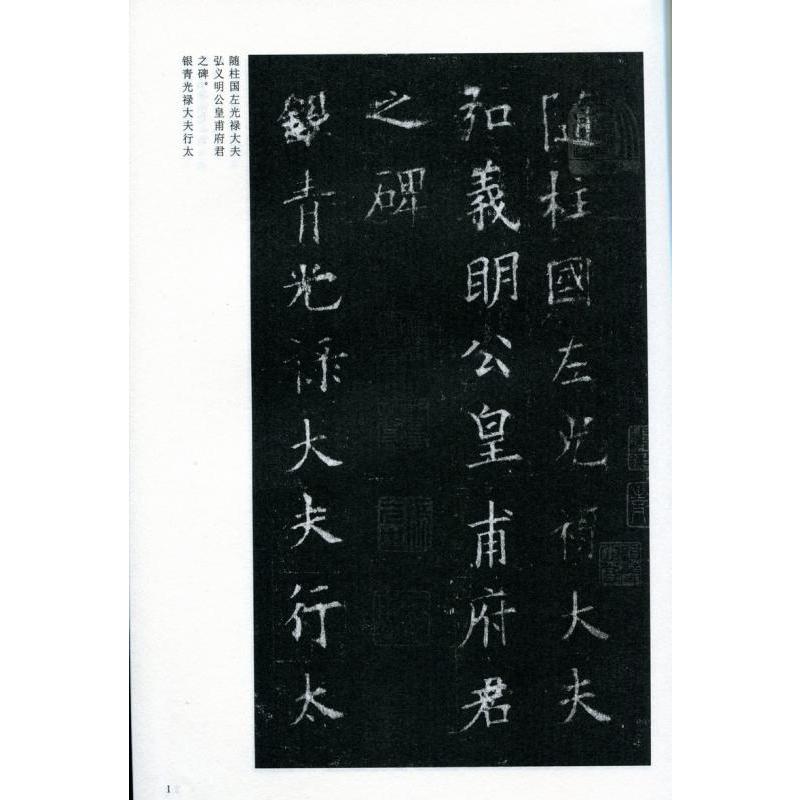 隨柱國左光祿大夫
弘義明公皇甫府君
之碑
銀青光祿大夫行太
随柱国左光禄大夫
弘义明公皇甫府君
之碑。
银青光禄大夫行太
1